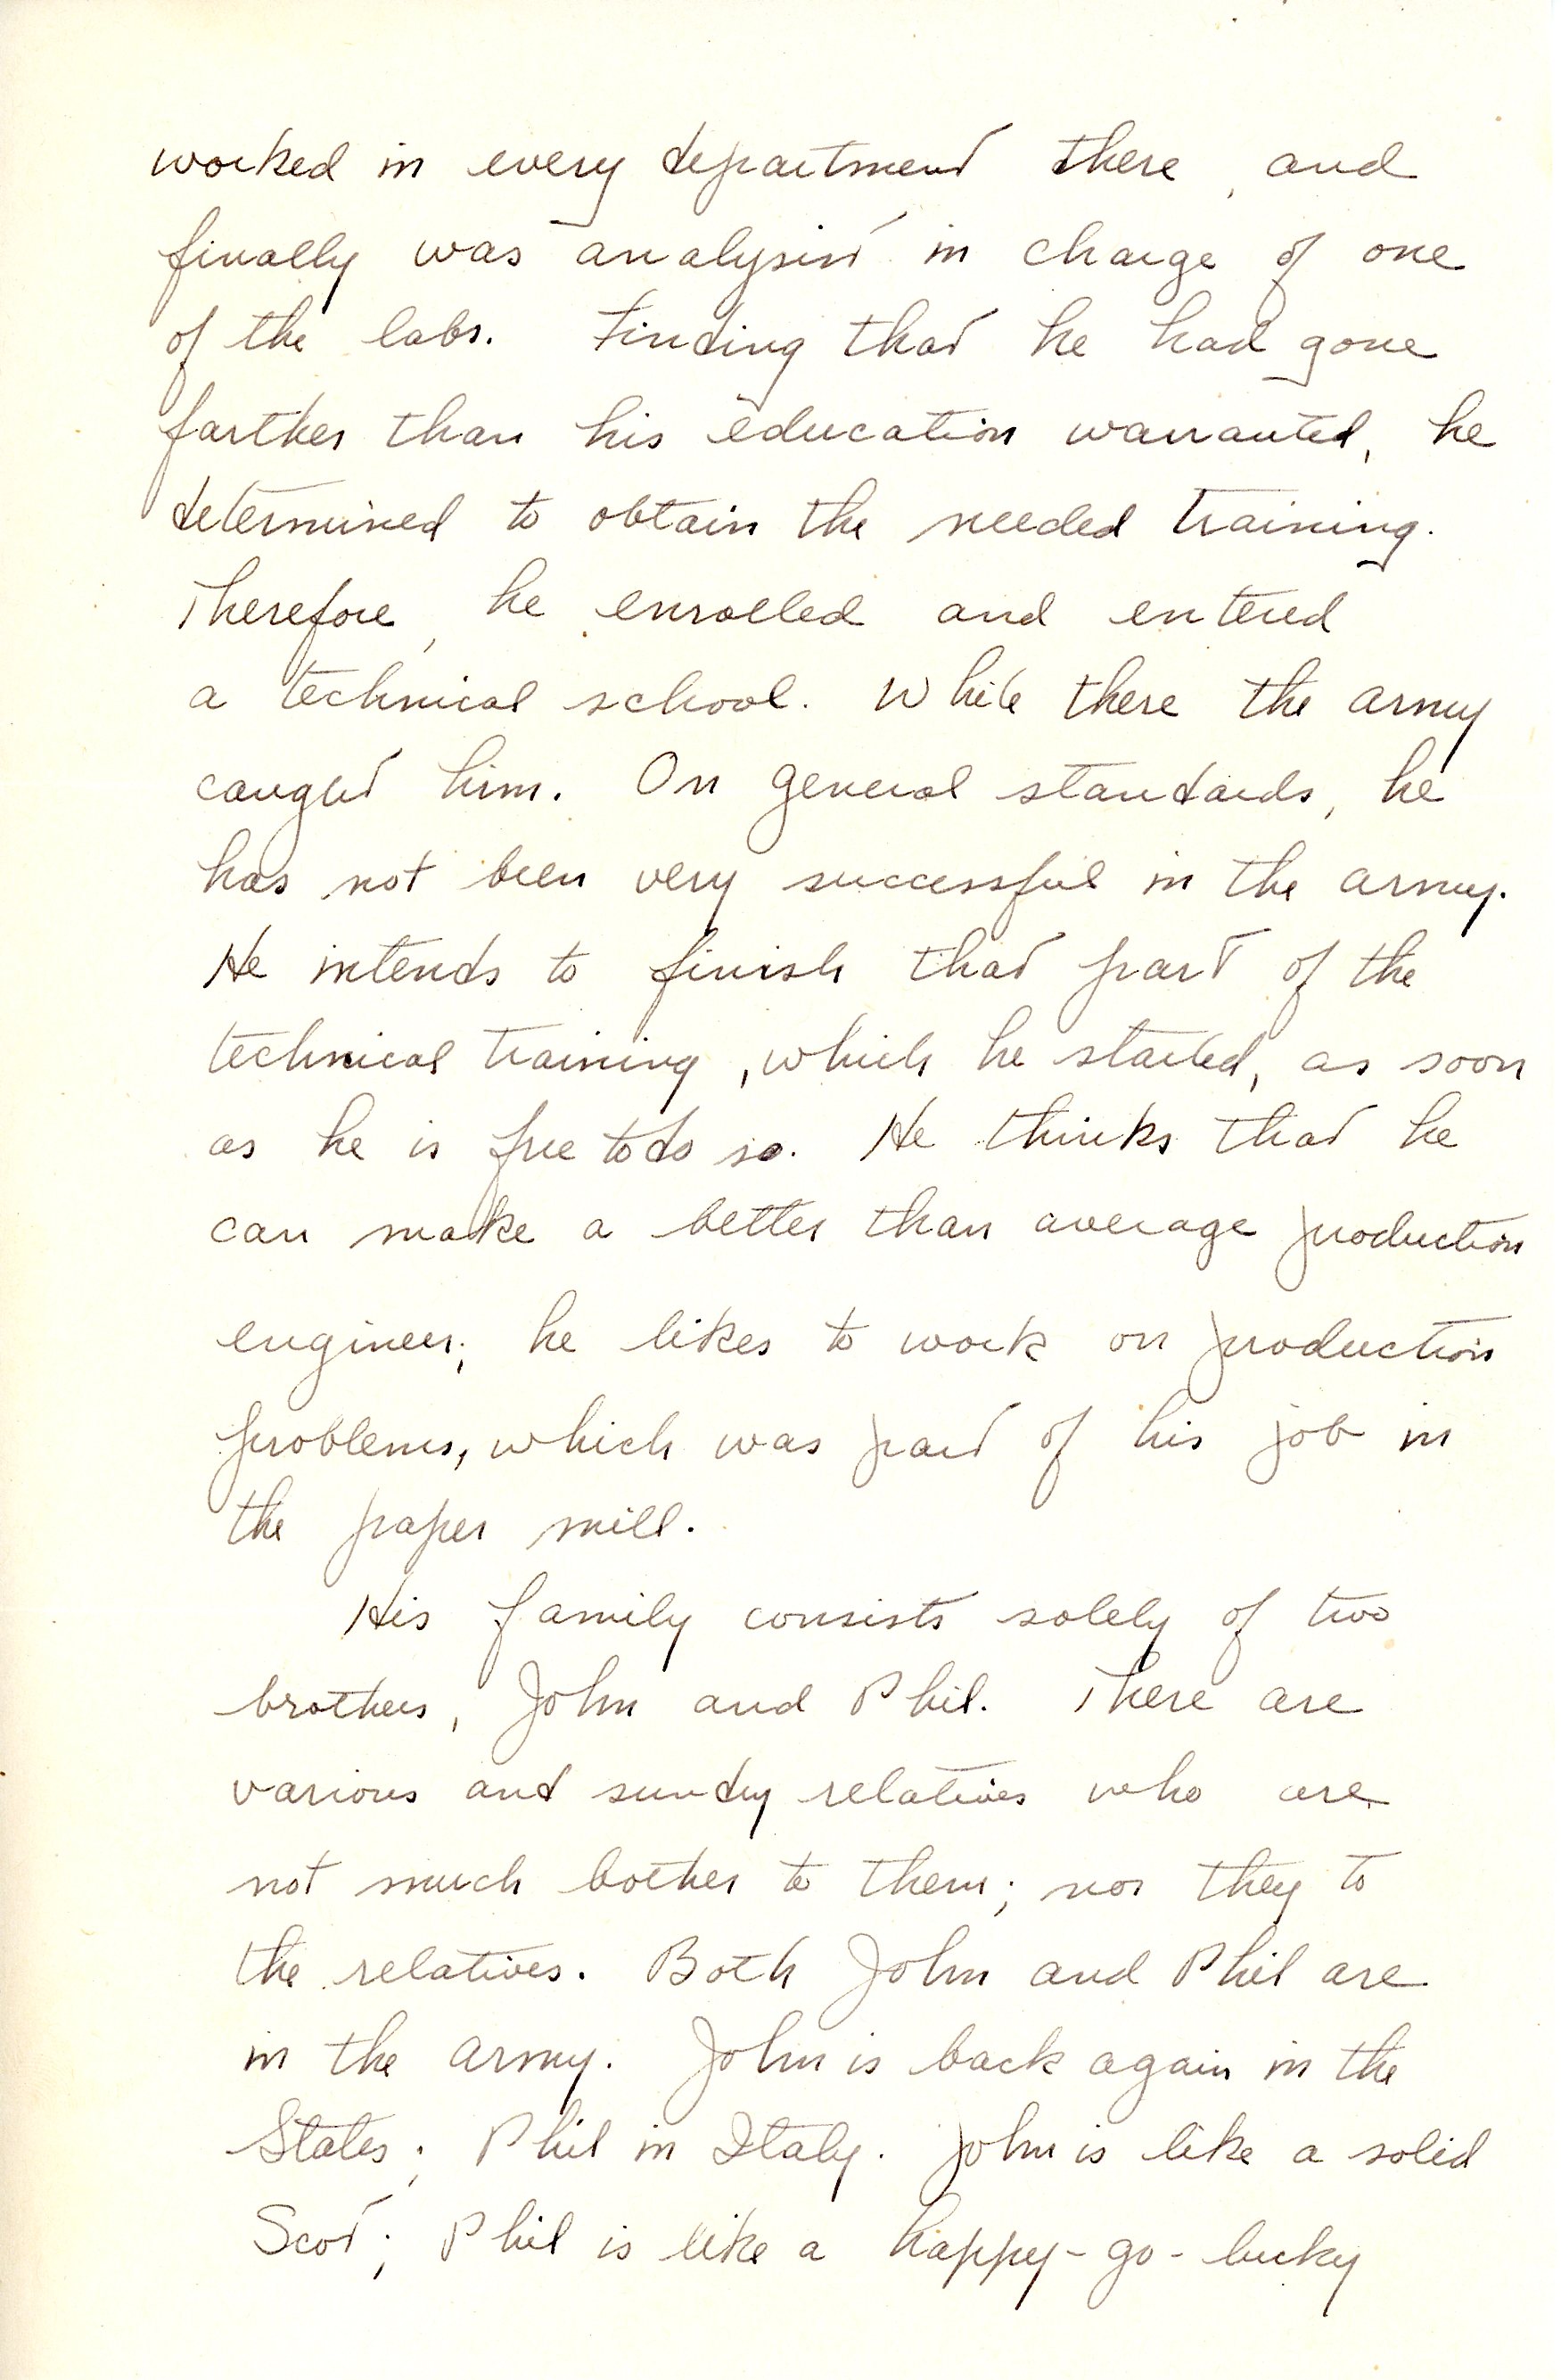 worked in every department there, and
finally was analysist in charge of one
of the labs. Finding that he had gone
farther than his education warranted, he
determined to obtain the needed training.
Therefore, he enrolled and entered
a technical school. While there the army
caught him. On general standards, he
has not been very successful in the army.
He intends to finish that part of the
technical training, which he started, as soon
as he is free to do so. He thinks that he
can make a better than average production
engineer; he likes to work on production
problems, which was part of his job in
the paper mill.
His family consists solely of two
brothers, John and Phil. There are
various and sundry relatives who are
not much bother to them; nor they to
the relatives. Both John and Phil are
in the army. John is back again in the
States; Phil in Italy. John is like a solid
Scot; Phil is like a happy-go-lucky